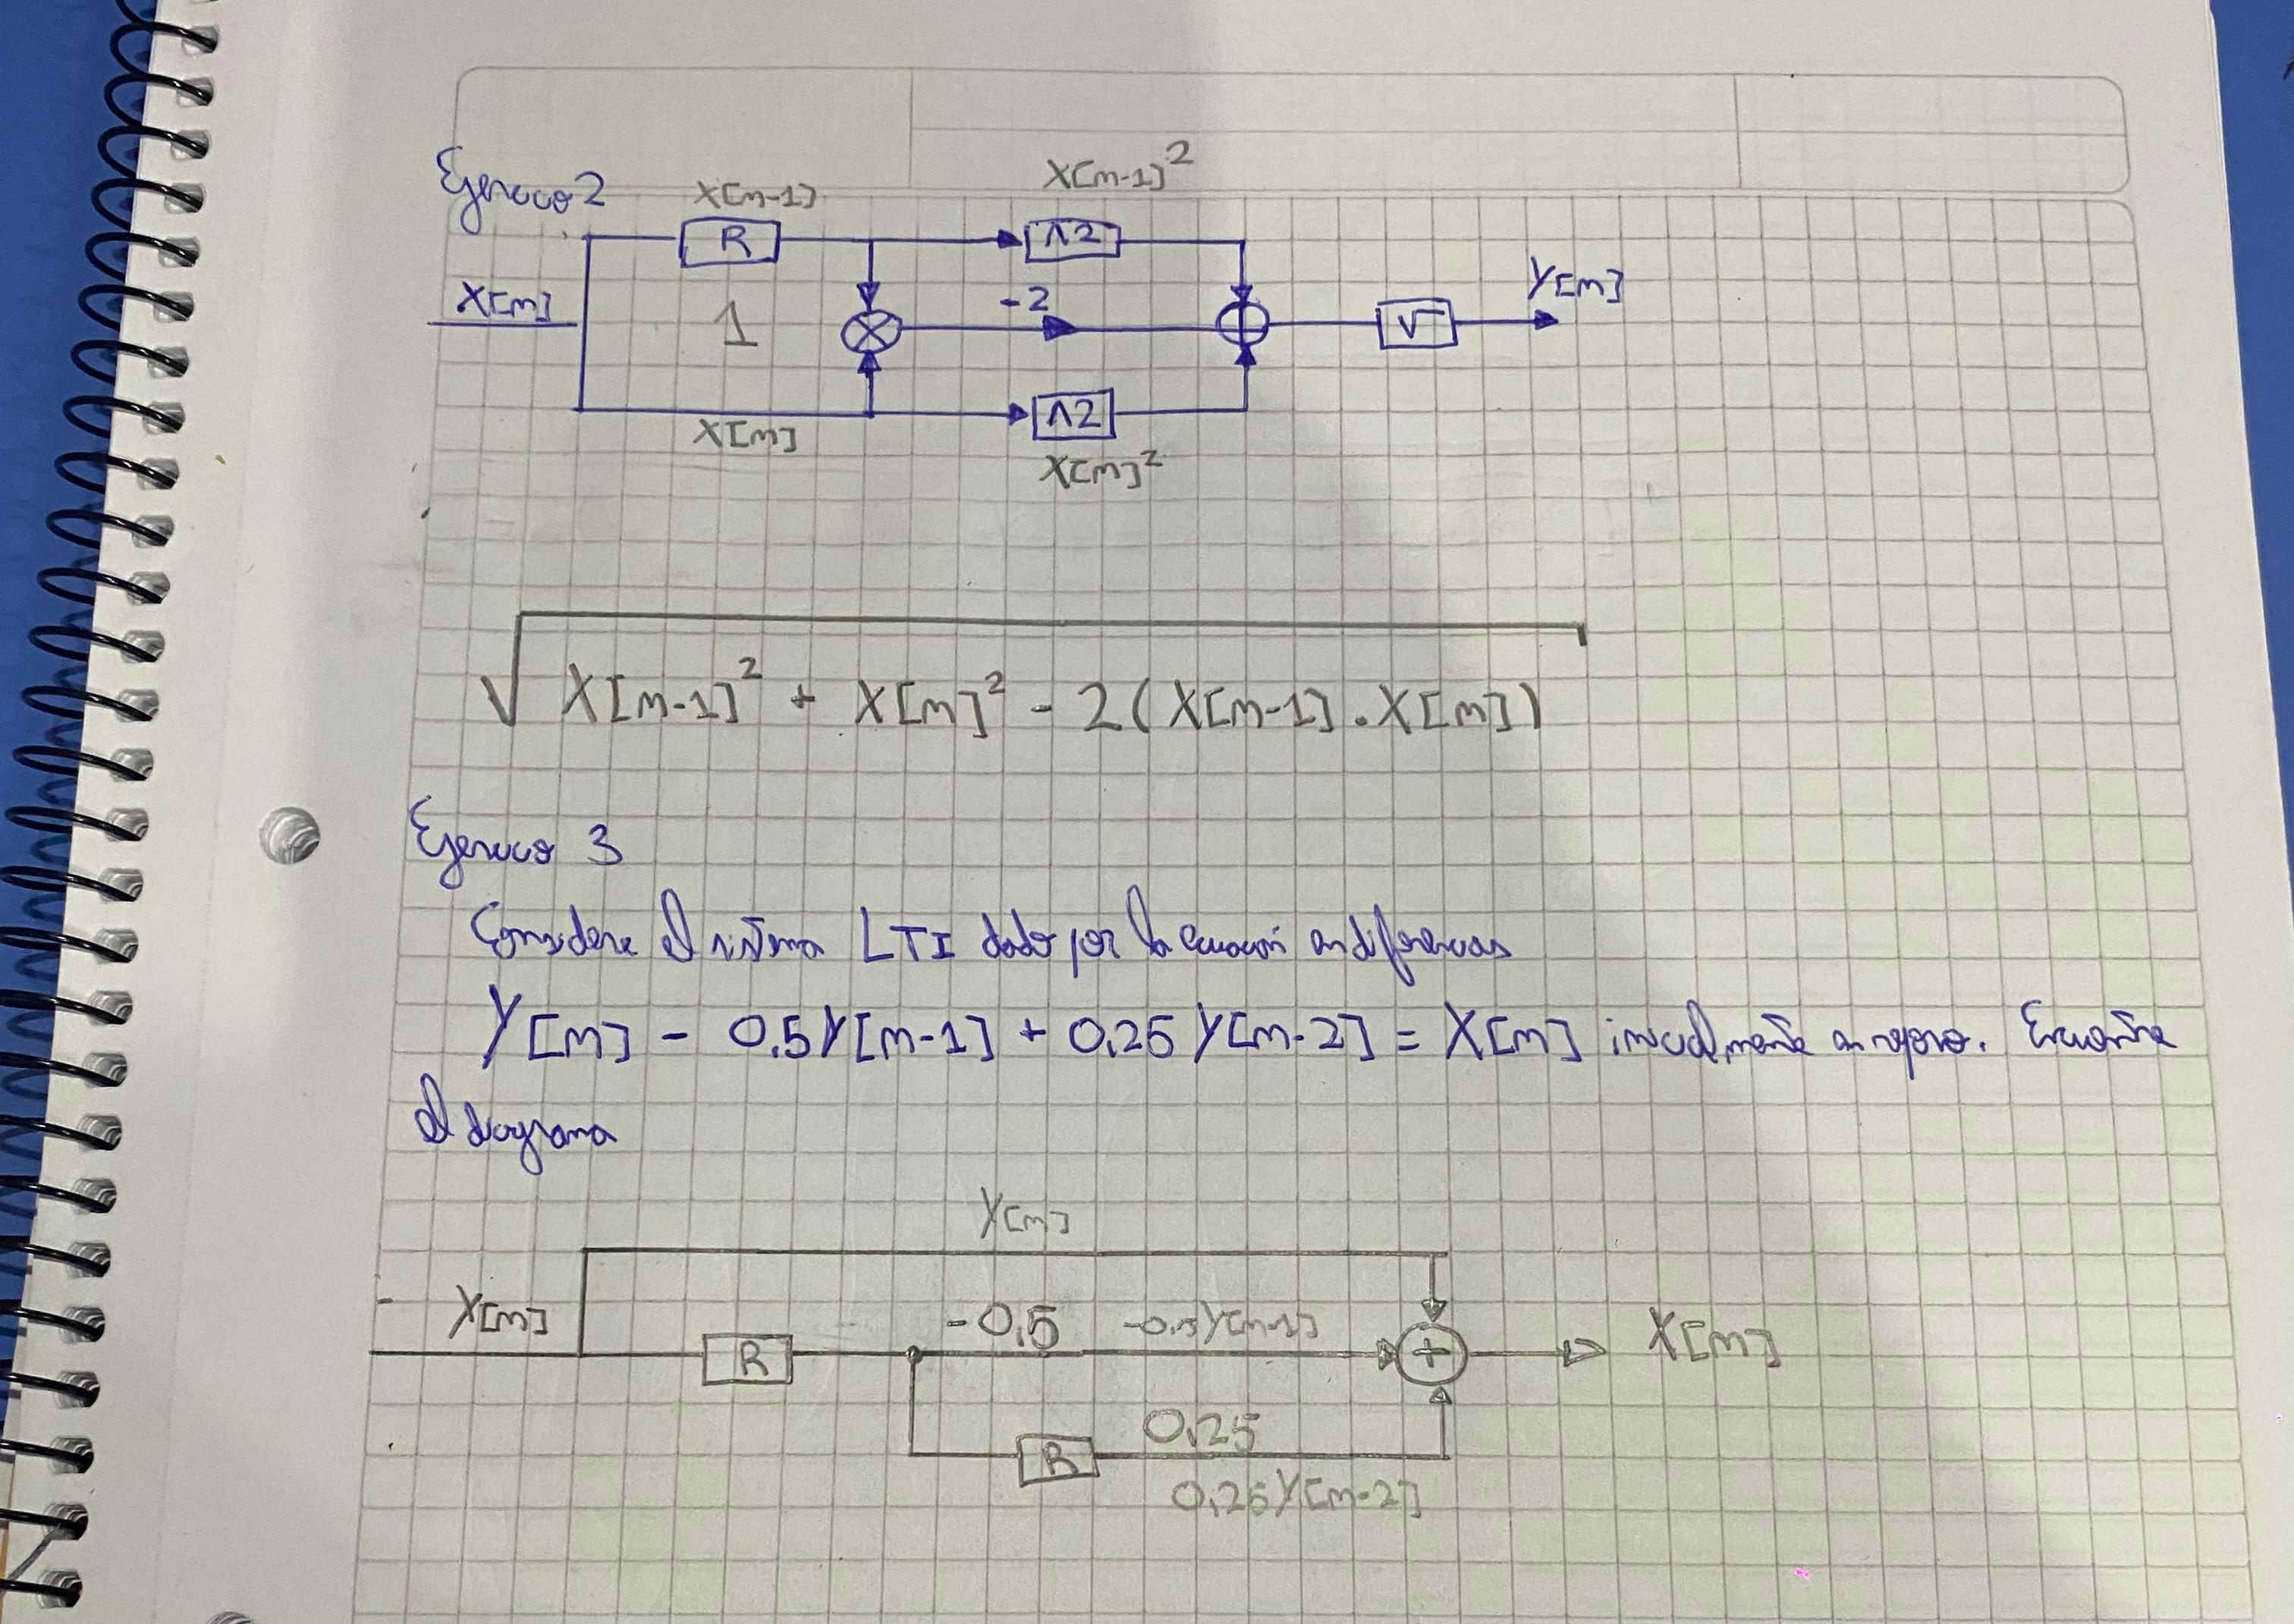 Ejercicio 2
X[n-1]
X[n-1]²
R
^2
X[n]
1
-2
√
Y[n]
X[n]
^2
X[n]²
√ X[n-1]² + X[n]² - 2(X[n-1].X[n])
Ejercicio 3
Considere el sistema LTI dado por la ecuación en diferencias
Y[n] - 0.5Y[n-1] + 0.25Y[n-2] = X[n] inicialmente en reposo. Encuentre
el diagrama
Y[n]
Y[n]
-0.5
-0.5Y[n-1]
R
+
X[n]
0.25
R
0.25Y[n-2]